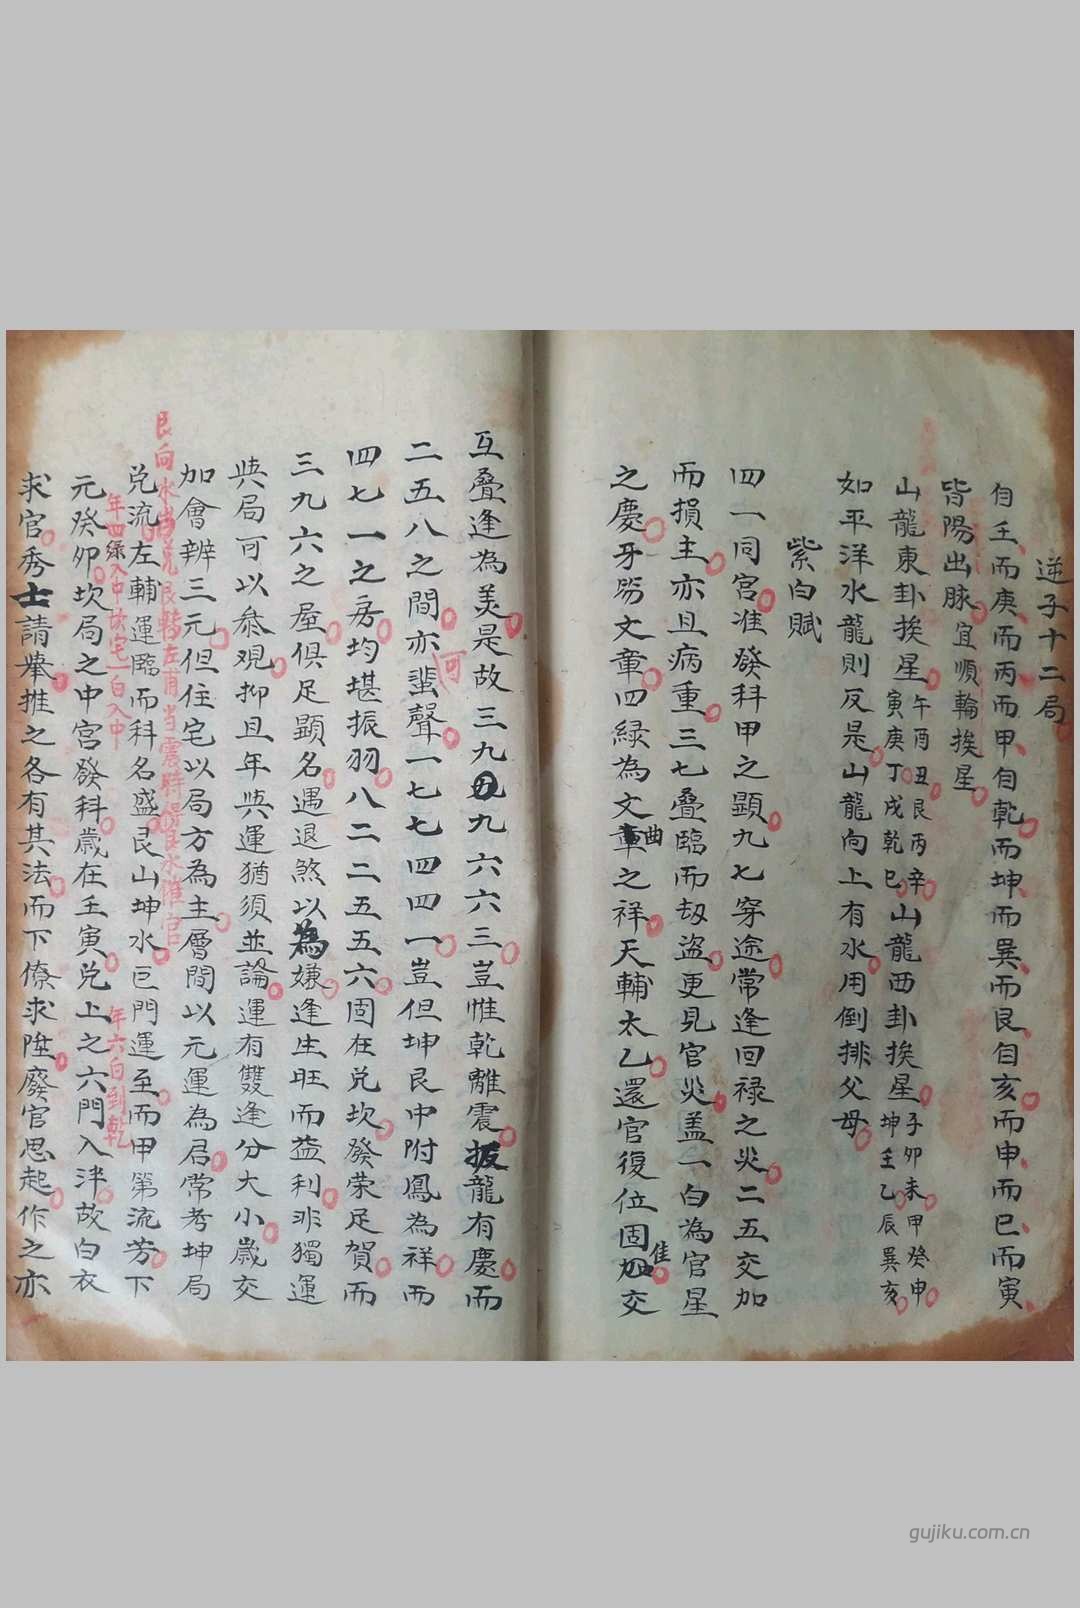 逆子十二局
自壬而庚而丙而甲自乾而坤而巽而艮自亥而申而巳而寅
皆陽出脉宜順輪挨星
山龍東卦挨星午酉丑艮丙辛寅庚丁戌乾巳山龍西卦挨星子卯未甲癸申坤壬乙辰巽亥
如平洋水龍則反是山龍向上有水用倒排父母
紫白賦
四一同宮准發科甲之顯九七穿途常逢回禄之災二五交加
而損主亦且病重三七疊臨而刼盜更見官災盖一白為官星
之慶牙笏文章四緑為文章曲之祥天輔太乙還官復位固加佳交
互疊逢為美是故三九九六六三豈惟乾離震扳龍有慶而
二五八之間亦可蜚聲一七七四四一豈但坤艮中附鳳為祥而
四七一之房均堪振羽八二二五五六固在兑坎發荣足賀而
三九六之屋俱足顯名遇退煞以為嫌逢生旺而益利非獨運
與局可以叅观抑且年與運猶須並論運有雙逢分大小歲交
加會辨三元但住宅以局方為主層間以元運為君常考坤局
兑流左輔運臨而科名盛艮山坤水巨門運至而甲第流芳下
元癸卯坎局之中宮發科歲在壬寅兑上之六門入泮故白衣
求官秀士請㨗推之各有其法而下僚求陞廢官思起作之亦
年四緑入中坎宅一白入中
年六白到乾
gujiku.com.cn